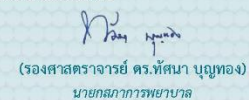 (รองศาสตราจารย์ ดร.ทัศนา บุญทอง)
นายกสภาการพยาบาล